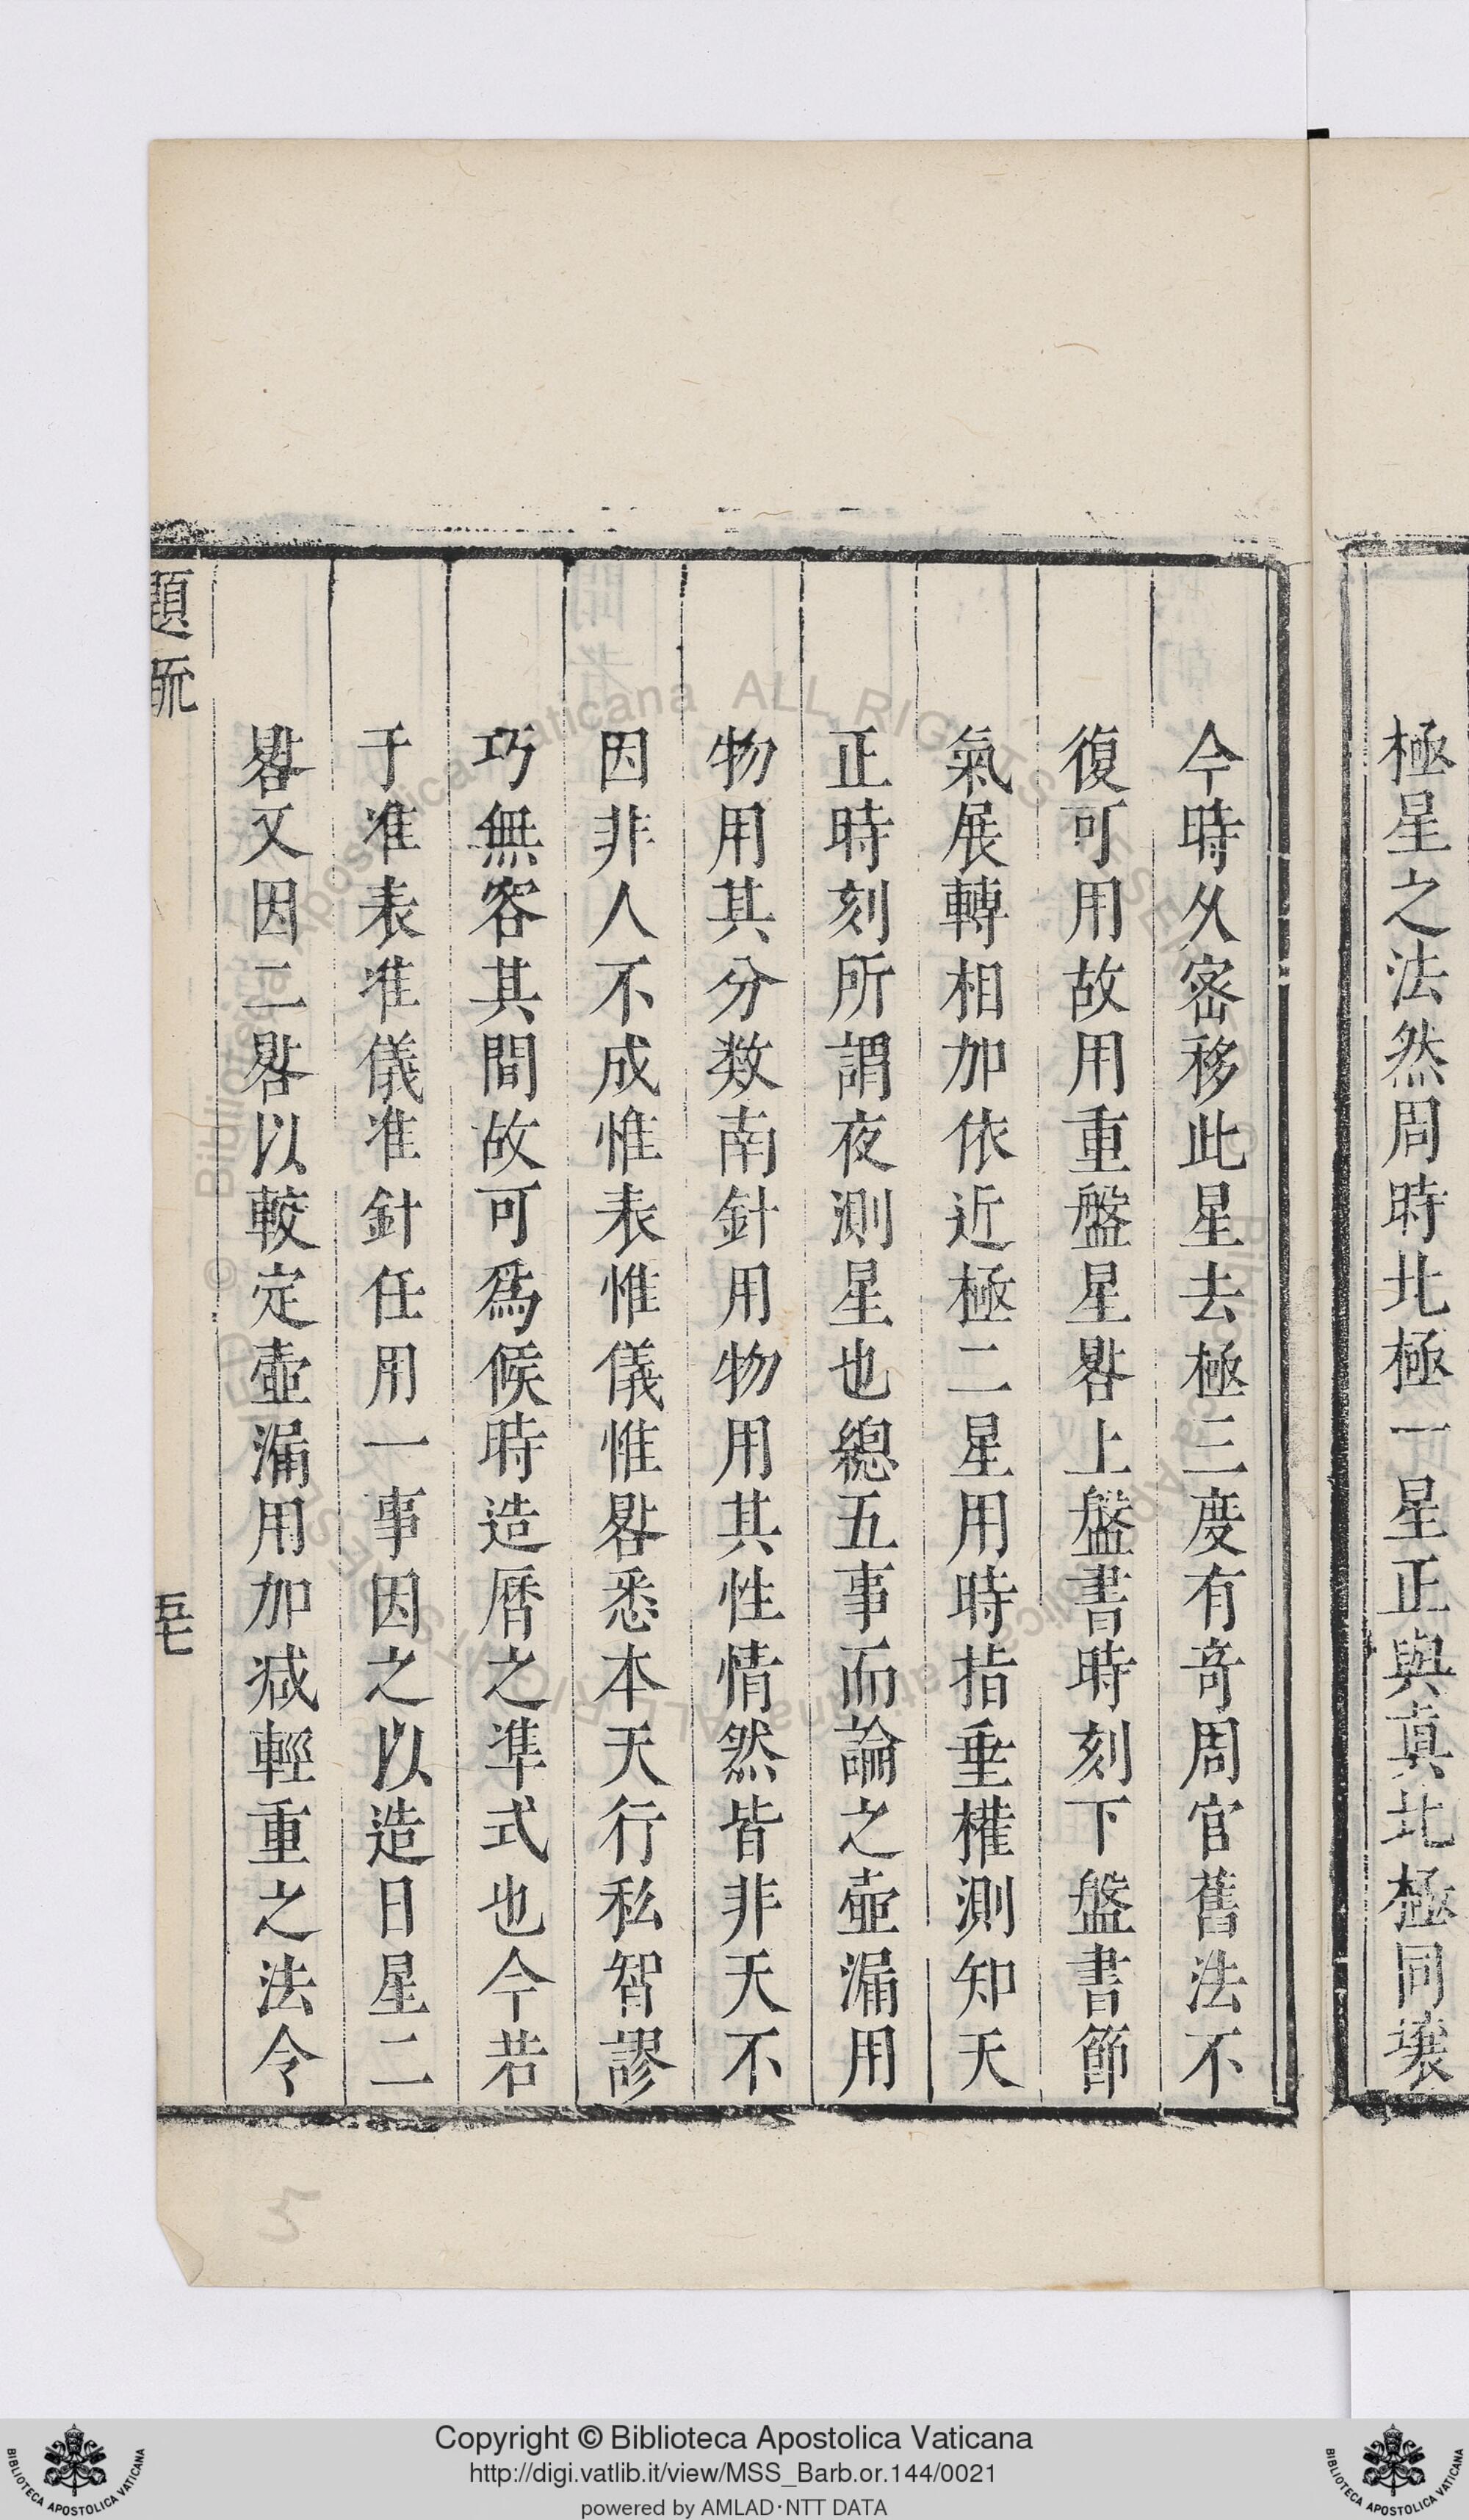 極星之法然周時北極一星正與真北極同壤
今時久密移此星去極三度有奇周官舊法不
復可用故用重盤星晷上盤書時刻下盤書節
氣展轉相加依近極二星用時指垂權測知天
正時刻所謂夜測星也總五事而論之壺漏用
物用其分数南針用物用其性情然皆非天不
因非人不成惟表惟儀惟晷悉本天行私智謬
巧無容其間故可爲候時造曆之準式也今若
于准表准儀准針任用一事因之以造日星二
晷又因二晷以較定壺漏用加减輕重之法令
題疏
五七
Copyright © Biblioteca Apostolica Vaticana
http://digi.vatlib.it/view/MSS_Barb.or.144/0021
powered by AMLAD·NTT DATA
BIBLIOTECA APOSTOLICA VATICANA
BIBLIOTECA APOSTOLICA VATICANA